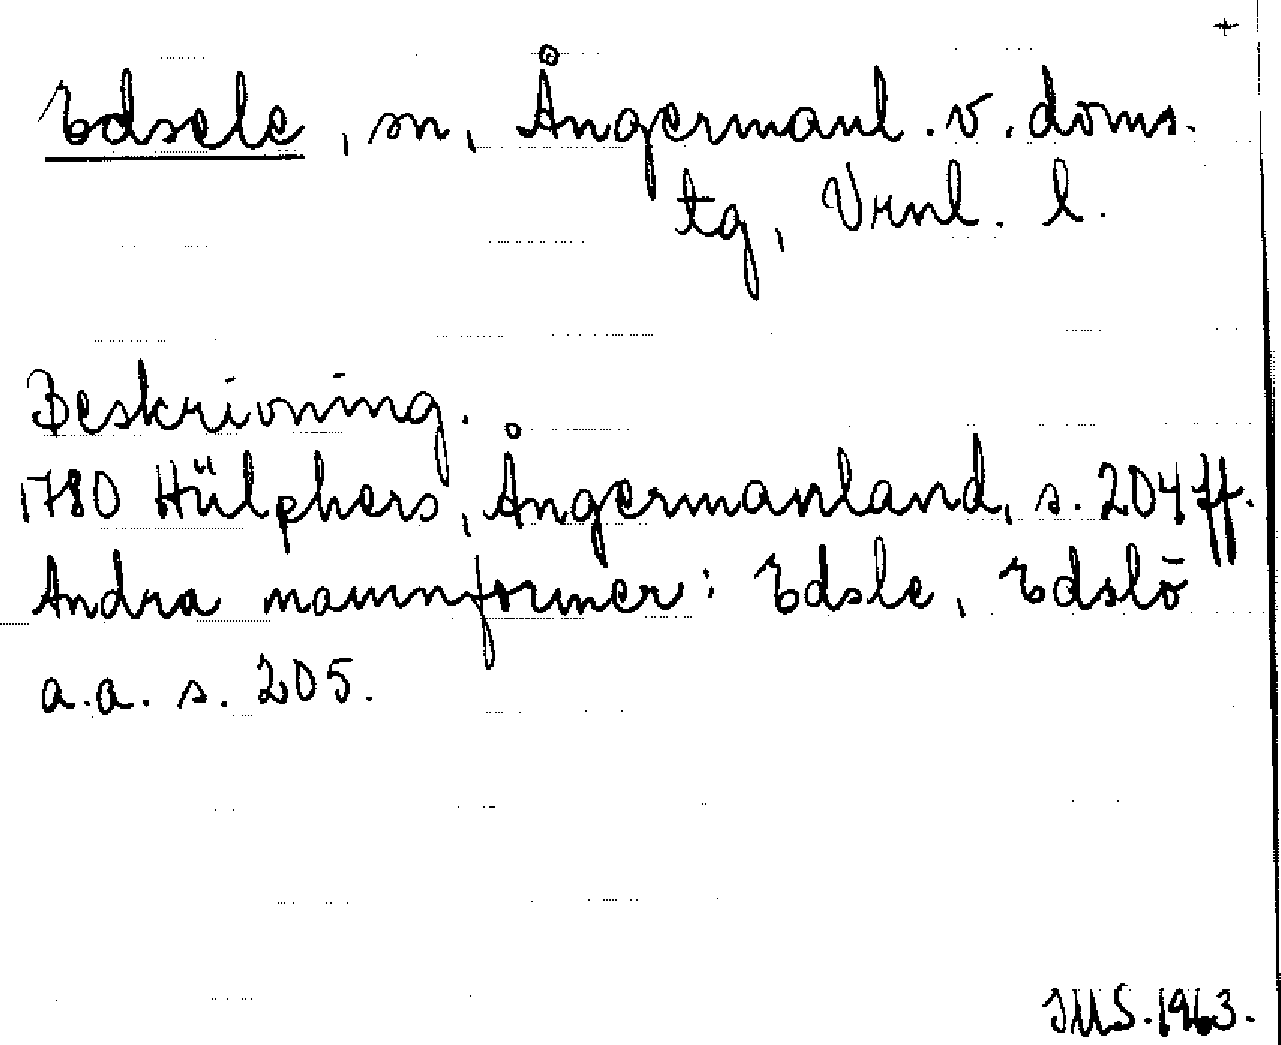 +
Edsele, sn, Ångermanl. v. doms.
tg, Vrnl. l.
Beskrivning.
1780 Hülphers, Ångermanland, s. 204 ff.
Andra namnformer: Edsle, Edslö
a.a. s. 205.
IMS. 1963.